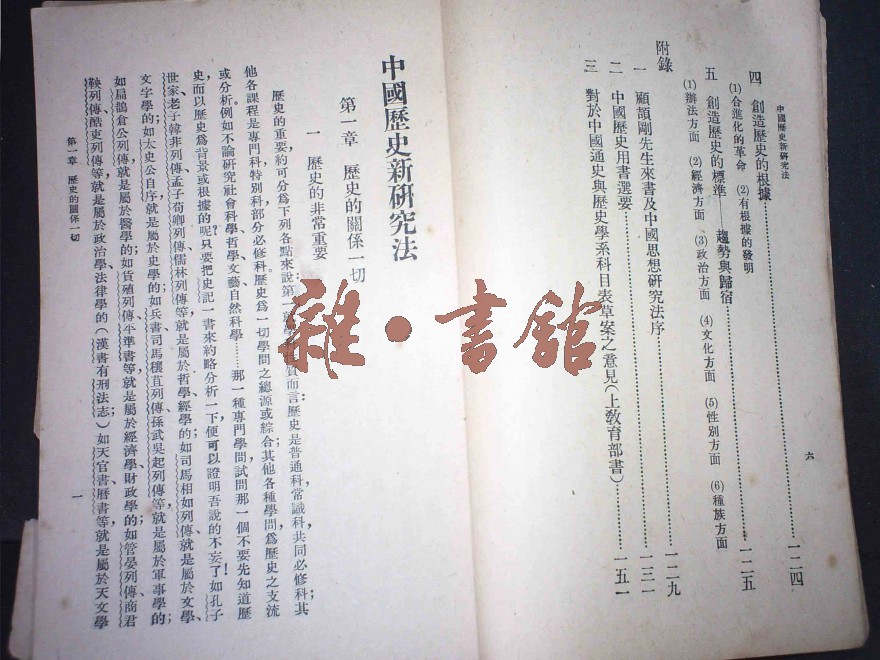 中國歷史新研究法
六
四 創造歷史的根據……一二四
(1)合進化的革命 (2)有根據的發明
五 創造歷史的標準——趨勢與歸宿……一二五
(1)辦法方面 (2)經濟方面 (3)政治方面 (4)文化方面 (5)性別方面 (6)種族方面
附錄
一 顧頡剛先生來書及中國思想研究法序……一二九
二 中國歷史用書選要……一三一
三 對於中國通史與歷史學系科目表草案之意見(上教育部書)……一五一
中國歷史新研究法
第一章 歷史的關係一切
一 歷史的非常重要
歷史的重要約可分爲下列各點來說:第一就學質而言:歷史是普通科,常識科,共同必修科;其
他各課程是專門科,特別科,部分必修科。歷史爲一切學問之總源或綜合;其他各種學問,爲歷史之支流
或分析。例如不論研究社會科學、哲學、文藝、自然科學……那一種專門學問,試問那一個不要先知道歷
史,而以歷史爲背景或根據的呢?只要把史記一書來約略分析一下,便可以證明吾說的不妄了!如孔子
世家、老子韓非列傳、孟子荀卿列傳、儒林列傳等,就是屬於哲學、經學的;如司馬相如列傳,就是屬於文學、
文字學的;如太史公自序,就是屬於史學的;如兵書、司馬穰苴列傳、孫武吳起列傳等,就是屬於軍事學的;
如扁鵲倉公列傳,就是屬於醫學的;如貨殖列傳、平準書等,就是屬於經濟學、財政學的;如管晏列傳、商君
鞅列傳、酷吏列傳等,就是屬於政治學、法律學的(漢書有刑法志);如天官書、曆書等,就是屬於天文學
第一章 歷史的關係一切
一
雜·書館